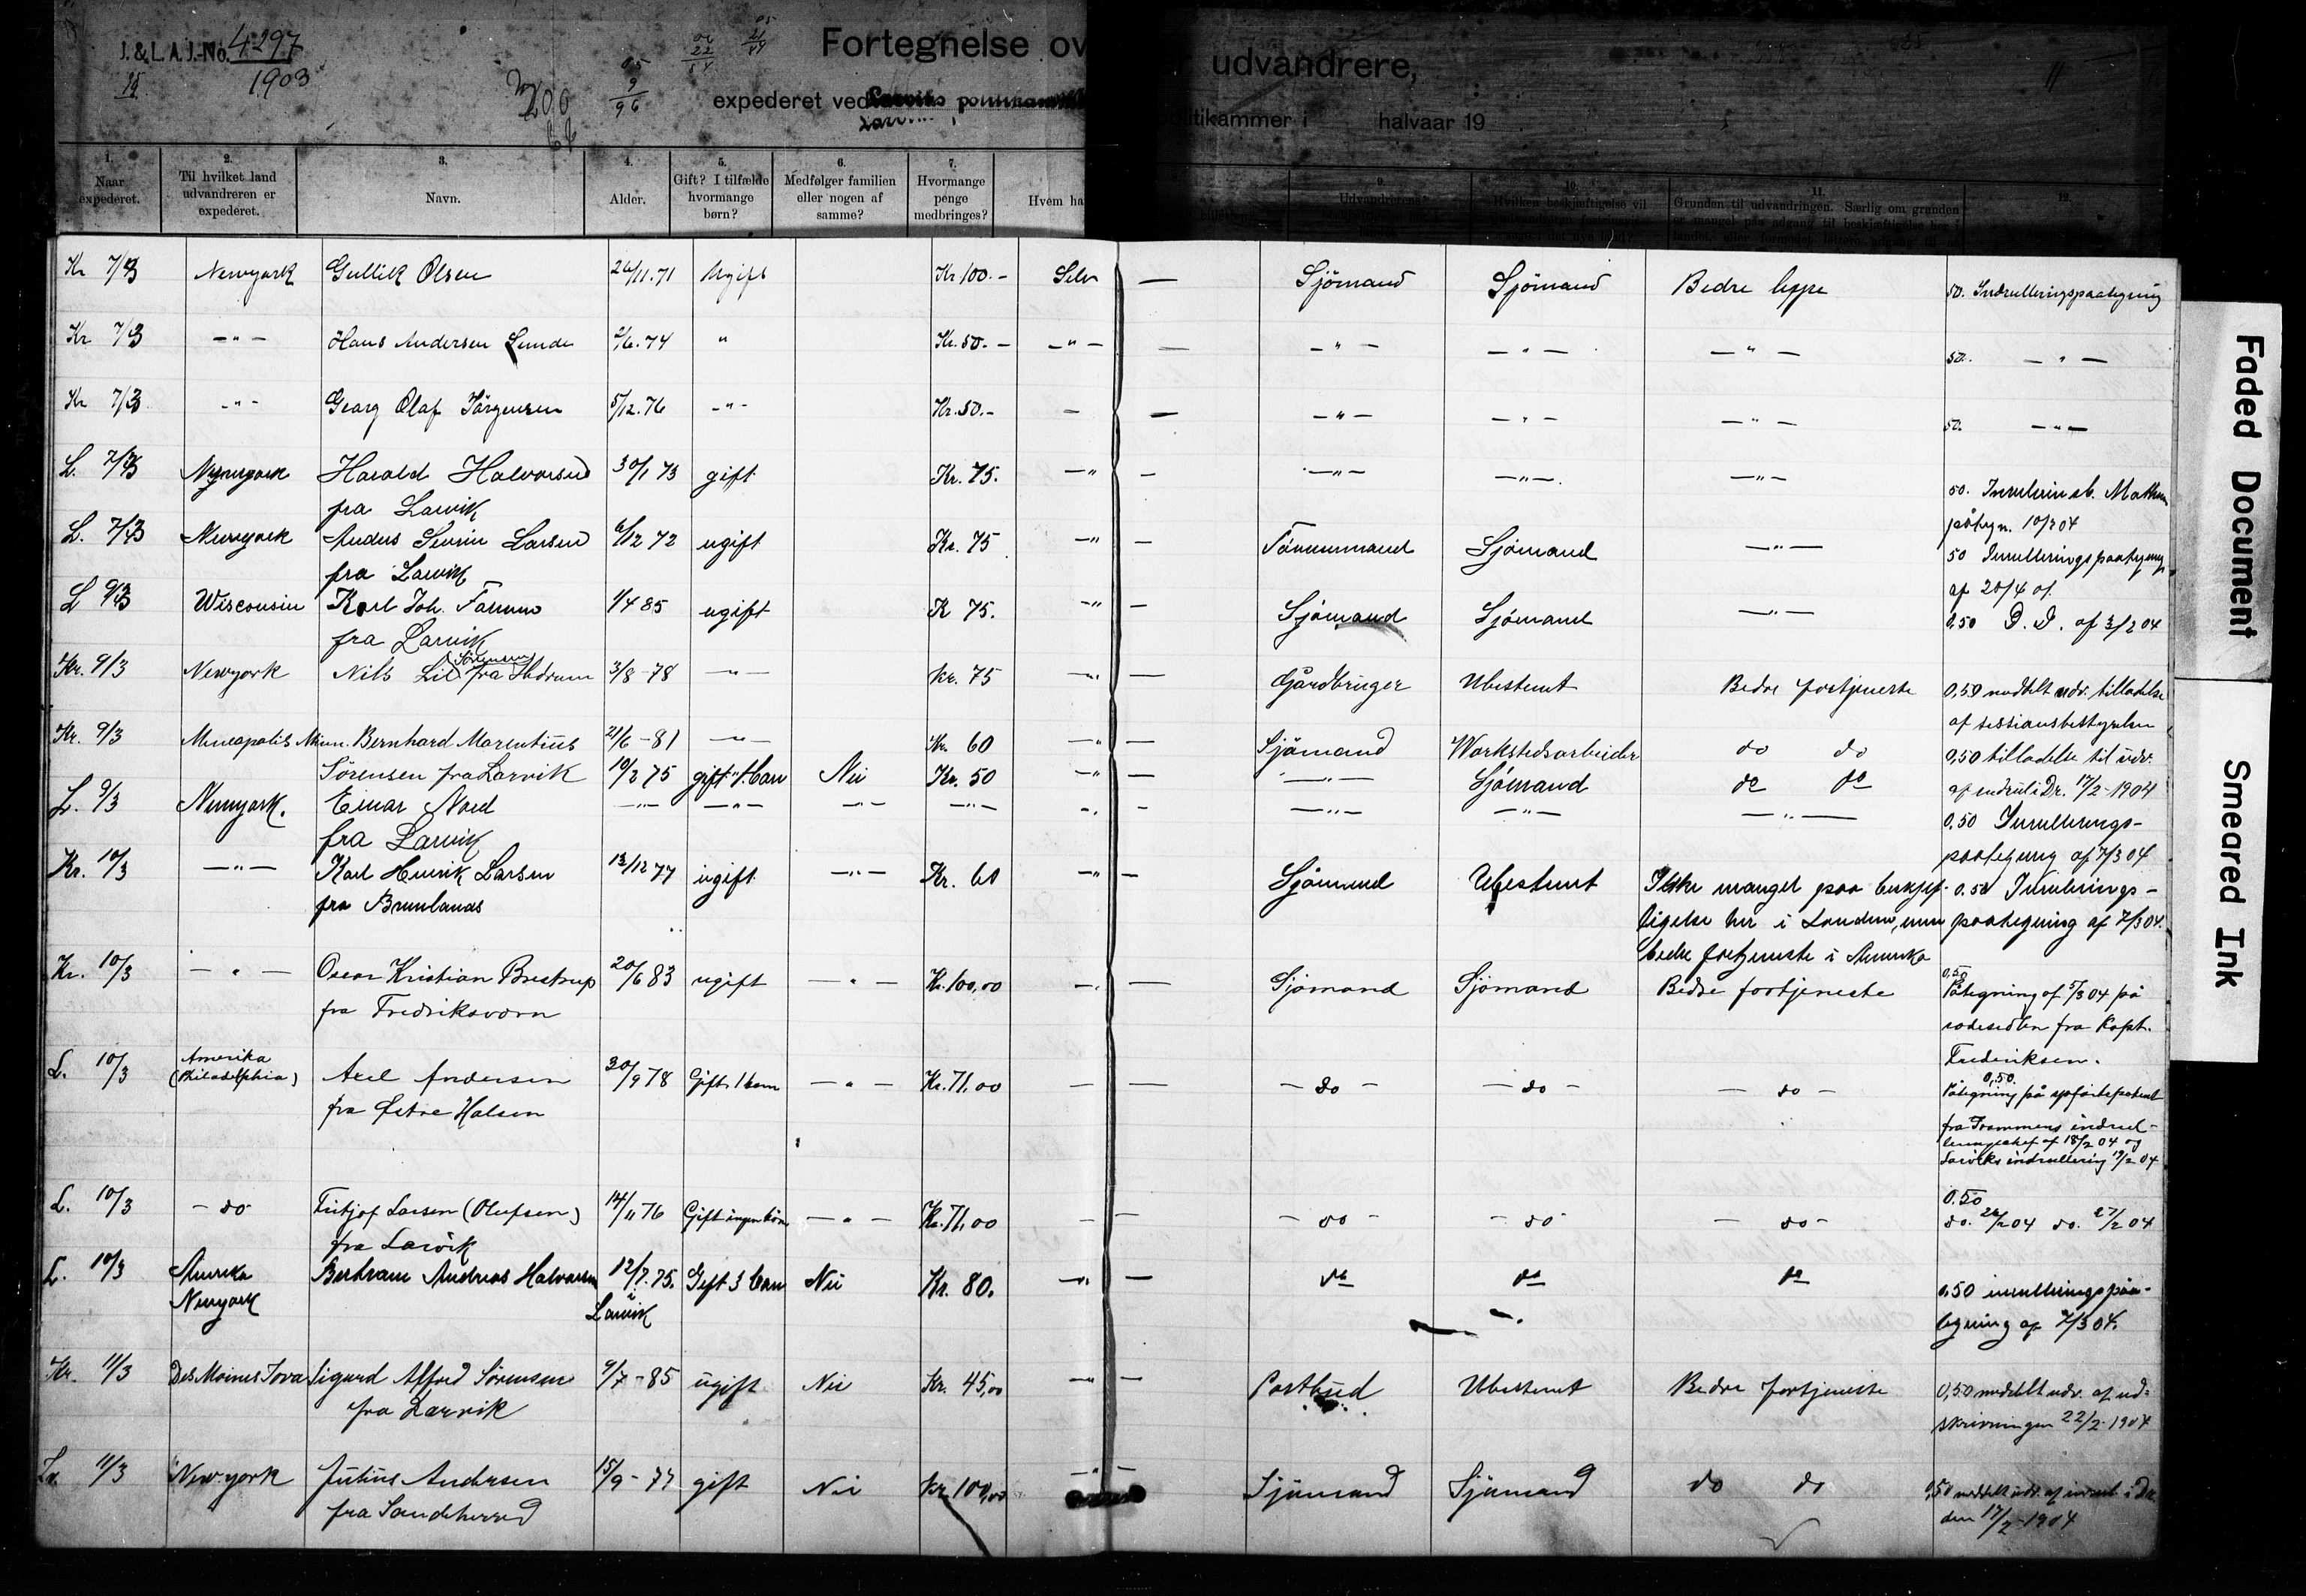 J. & L. A. J.-No. 4297
1903
200
05
9
96
Fortegnelse ov
udvandrere,
expederet ved
litikammer i halvaar 19
1. Naar expederet.
2. Til hvilket land udvandreren er expederet.
3. Navn.
4. Alder.
5. Gift? I tilfælde hvormange børn?
6. Medfølger familien eller nogen af samme?
7. Hvormange penge medbringes?
Hvem ha
9.
10. Hvilken beskjæftigelse vil
11. Grunden til udvandringen. Særlig om grunden er mangel paa adgang til beskjæftigelse her i
12.
Kr 7/3 Newyork Gullik Olsen 26/11.71 Ugift Kr 100.- Selv — Sjömand Sjömand Bedre 50. Indrulleringspaategning
Kr 7/3 —"— Hans Andersen Lunde 2/6.74 " Kr. 50.- —"— — —"— —"— —"— 50. —"—
Kr 7/3 -"- Georg Olaf Jörgensen 5/12.76 -"- Kr. 50.- — — —"— —"— —"— 50. —"—
L. 7/3 Newyork Harald Halvorsen 30/1 73 gift Kr. 75. —" — —"— —"— —"— 50.
fra Larvik påtegn. 10/2 04
L. 7/3 Newyork Anders Severin Larsen 6/12 72 ugift Kr. 75 —" — Tömmermand Sjömand —"— 50 Inrulleringspaategning
fra Larvik af 20/4 01
L 9/3 Wisconsin Karl Joh. 1/4 85 ugift K 75. —" — Sjömand Sjömand —"— 0,50 D. D. af 3/2 04
fra Larvik
Sörensen
Kr. 9/3 Newyork Nils Lie fra Hedrum 3/8-78 —"— Kr. 75 —" — Gårdbruger Ubestemt Bedre fortjeneste 0,50 meddelt udv. tilladelse
af sessionsbestyrelsen
Kr. 9/3 Mineapolis Minn. Bernhard Marentius 21/6-81 —"— Kr. 60 —" — Sjömand Værkstedsarbeider do do 0,50 tilladelse til udv.
Sörensen fra Larvik 10/2 75 gift 1 barn Nei Kr. 50 —" — —"— Sjömand do do af indrul i Dr. 17/2-1904
L. 9/3 Newyork. Einar Nord —"— —"— —"— —"— —"— —"— —"— 0,50 Inrullerings-
fra Larvik paategning af 7/3 04
Kr. 10/3 —"— Karl Henrik Larsen 13/12 77 ugift —"— Kr. 60 —" — Sjömand Ubestemt Ikke mangel paa beskjæf- 0.50 Inrullerings-
fra Brunlanæs tigelse her i Landene, men paategning af 7/3 04.
bedre fortjeneste i Amerika
Kr. 10/3 —"— Oscar Kristian Brestrup 20/6 83 ugift —"— Kr. 100,00 —" — Sjömand Sjömand Bedre fortjeneste 0,50 Påtegning af 5/3 04 på
fra Fredriksværn rodesedlen fra Kapt.
Frederiksen.
L. 10/3 Amerika (Philadelphia) Axel Andersen 30/9 78 Gift 1 barn —"— Kr. 71.00 — — —do— —do— —do— 0,50. Påtegning på
fra Østre Halsen fra
af 18/2 04 og
Larviks indrullering 19/2 04
L. 10/3 —do Fritjof Larsen (Olufsen) 14/11 76 Gift ingen börn —"— Kr. 71.00 — — —do— —do— —do— 0.50
fra Larvik do. 26/2 04 do. 27/2 04
L. 10/3 Amerika Newyork Bertram Andreas Halvorsen 12/7.75. i Larvik Gift 3 barn Nei Kr. 80. —" — do do do 0,50 inrulleringspaa-
tegning af 7/3 04.
Kr. 11/3 Des Moines Iova Sigurd Alfred Sörensen 9/7-85 ugift Nei Kr. 45,00 —" — Postbud Ubestemt Bedre fortjeneste 0,50 meddelt udv. af ud-
fra Larvik skrivningen 22/2-1904
La. 11/3 New-york Julius Andersen 15/9-77 gift Nei Kr 100,00 —"— Sjömand Sjömand do do 0,50 meddelt udv. af inrul. i Dr.
fra Sandeherred den 17/2-1904
Faded Document
Smeared Ink